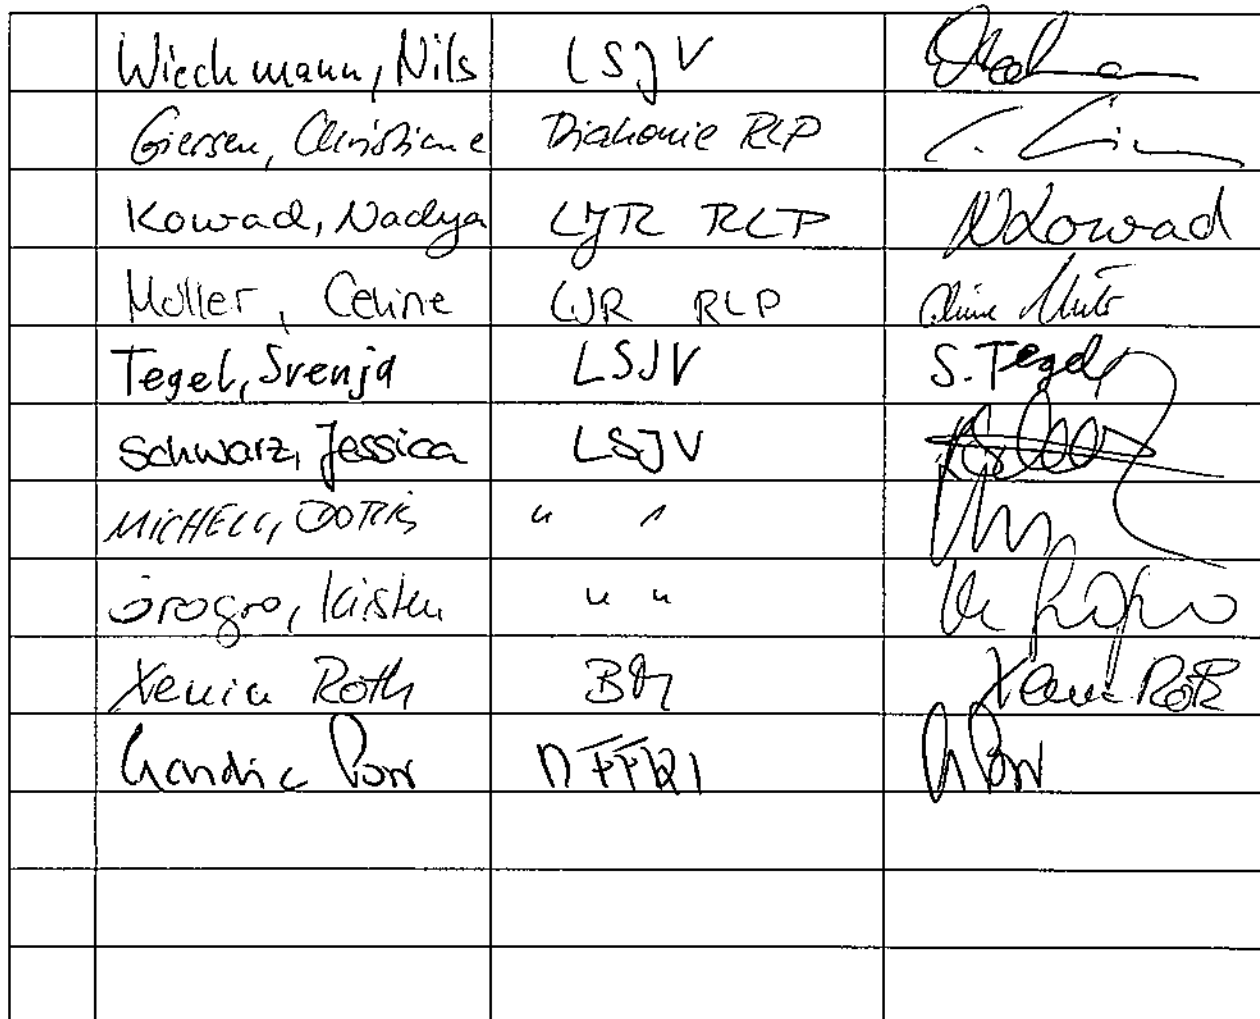 Wiechmann, Nils LSJV
Giersen, Christiane Diakonie RLP
Kowad, Nadya LJR RLP N Kowad
Müller, Celine LJR RLP Celine
Tegel, Svenja LSJV S. Tegel
Schwarz, Jessica LSJV
MICHELL, DORIS " "
Grogro, Kirsten " "
Xenia Roth BM Xenia Roth
Porr MFFKI Porr